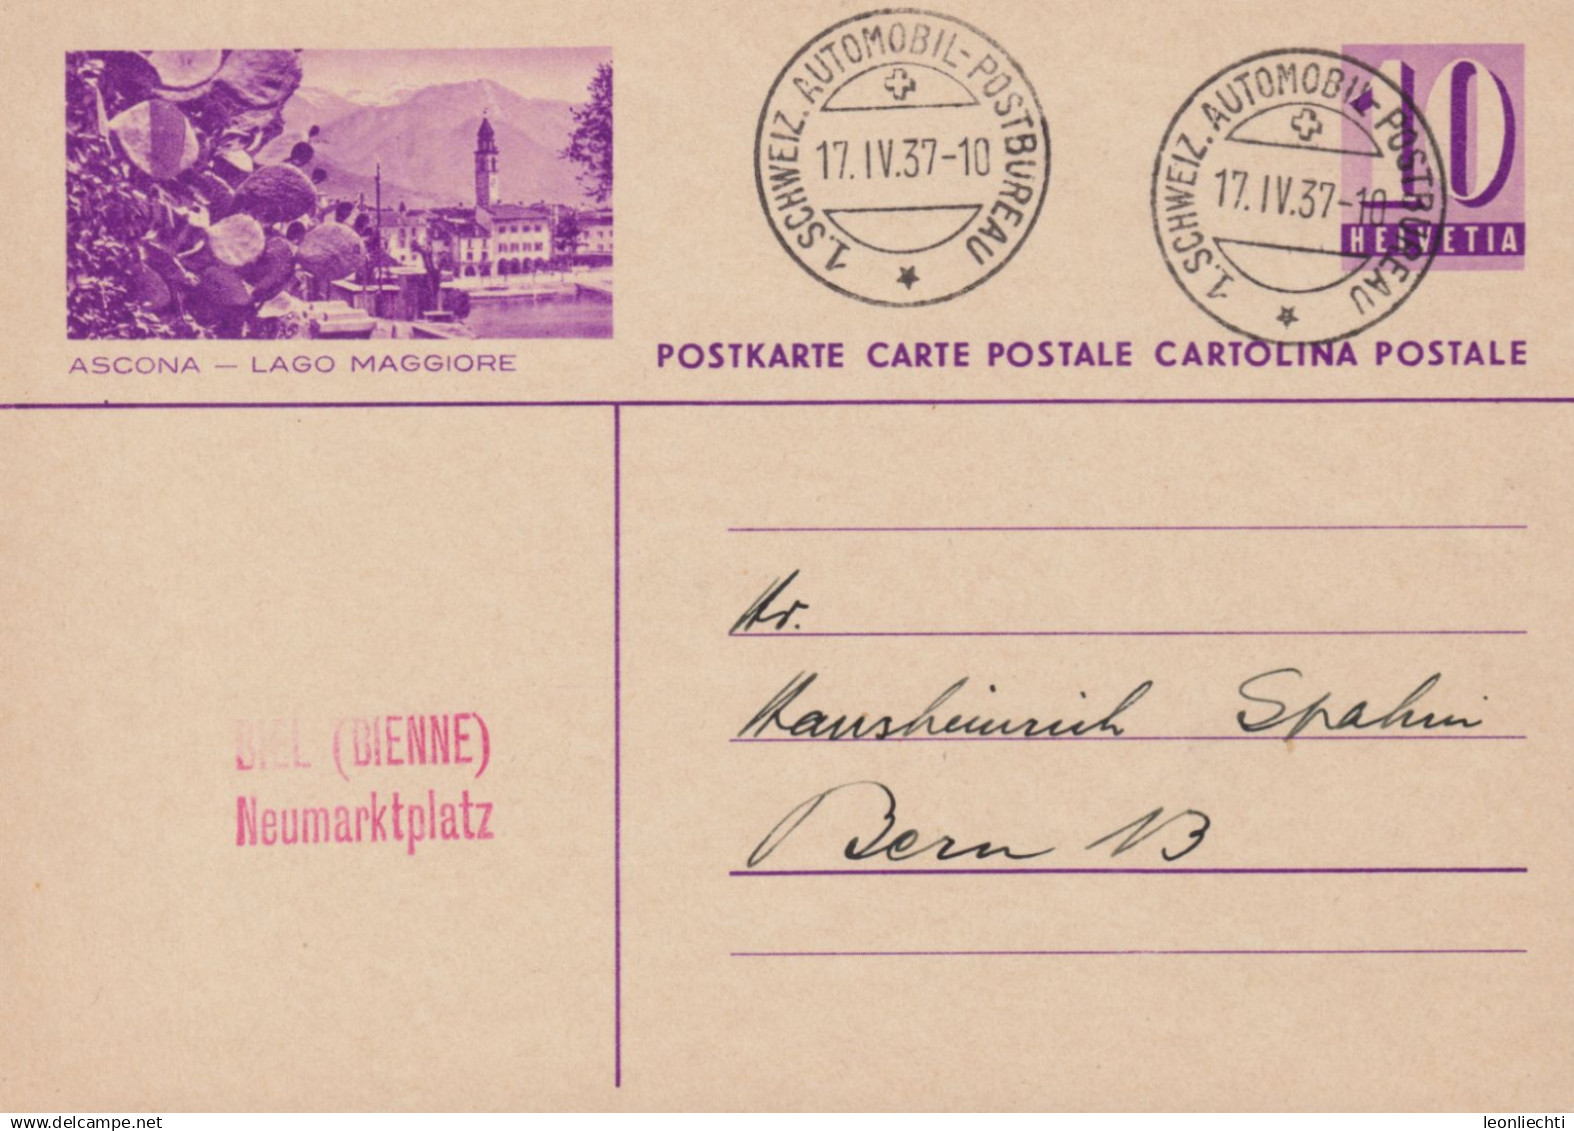 1. SCHWEIZ. AUTOMOBIL-POSTBUREAU
17.IV.37-10
1. SCHWEIZ. AUTOMOBIL-POSTBUREAU
17.IV.37-10
10
HELVETIA
ASCONA — LAGO MAGGIORE
POSTKARTE CARTE POSTALE CARTOLINA POSTALE
Hr.
Hansheinrich Spahni
Bern 13
BIEL (BIENNE)
Neumarktplatz
www.delcampe.net
leonliechti